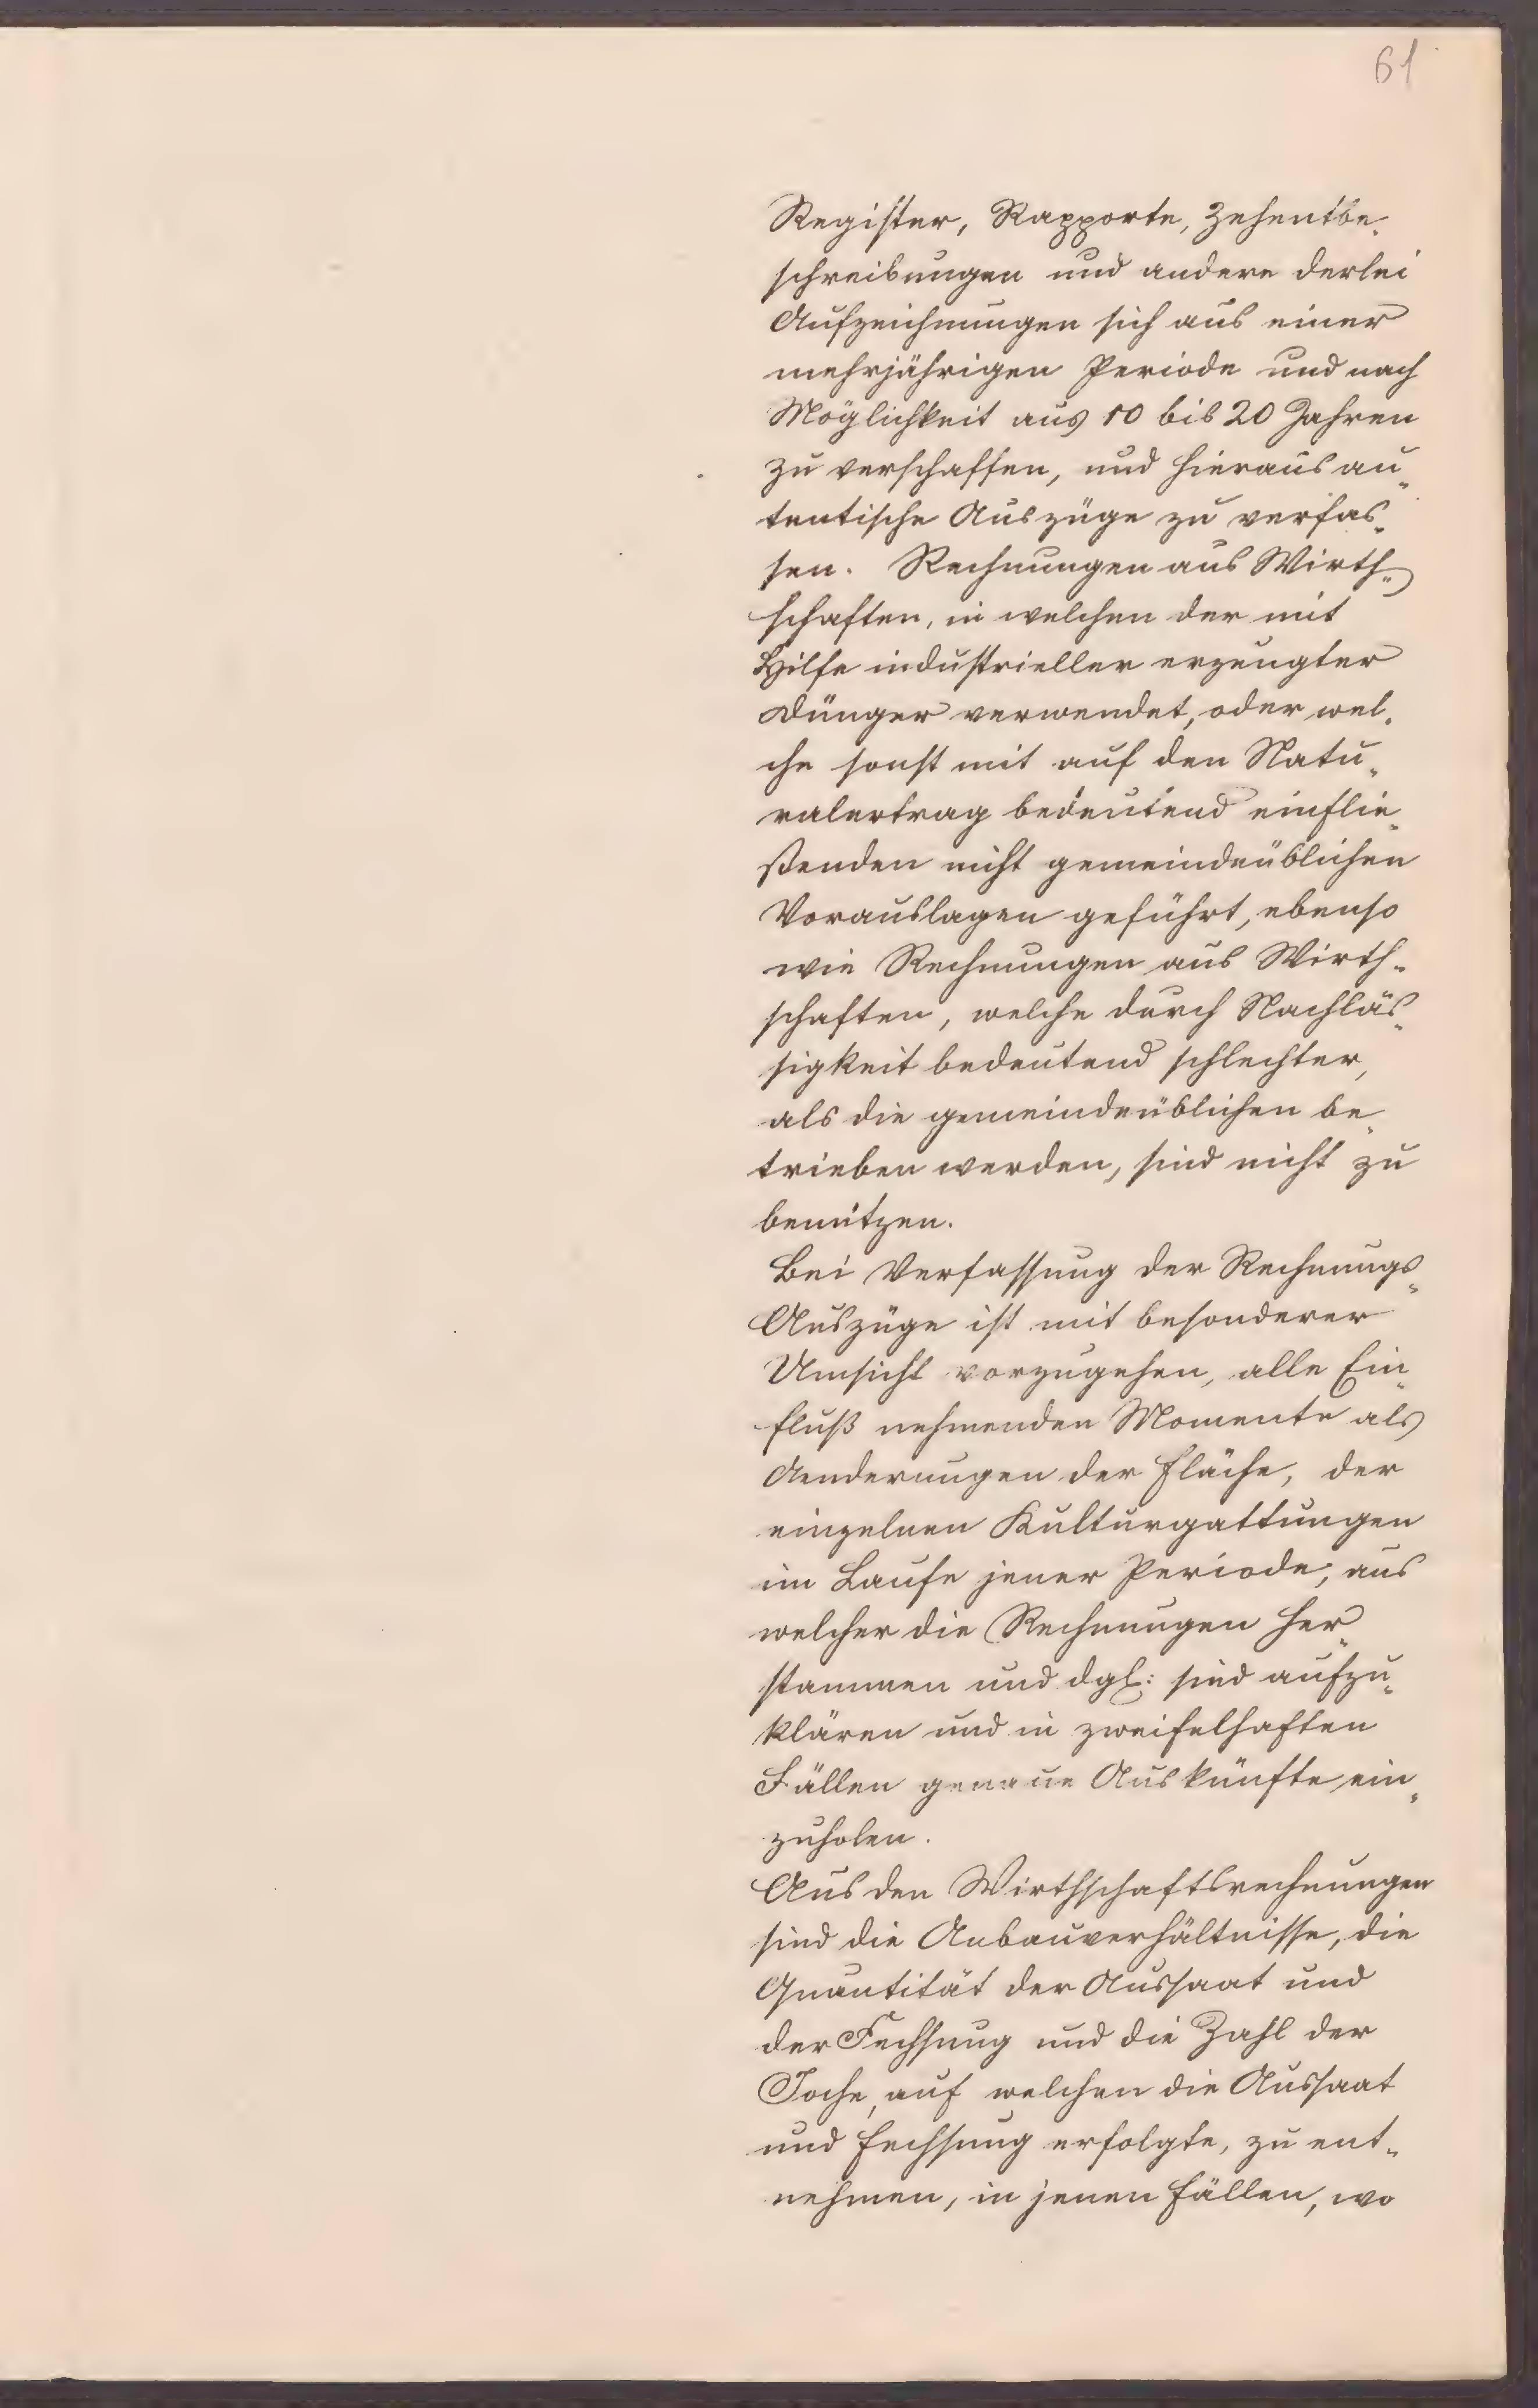 61
Register, Rapporte, Zehentbe„
schreibungen und andere derlei
Aufzeichnungen sich aus einer
mehrjährigen Periode und nach
Möglichkeit aus 10 bis 20 Jahren
zu verschaffen, und hieraus au„
tentische Auszüge zu verfas„
sen. Rechnungen aus Wirth„
schaften, in welchen der mit
Hilfe industrieller erzeugter
Dünger verwendet, oder wel„
che sonst mit auf den Natu„
ralertrag bedeutend einflie„
ßenden nicht gemeindeüblichen
Vorauslagen geführt, ebenso
wie Rechnungen aus Wirth„
schaften, welche durch Nachläs„
sigkeit bedeutend schlechter,
als die gemeindeüblichen be„
trieben werden, sind nicht zu
benützen.
Bei Verfassung der Rechnungs„
Auszüge ist mit besonderer
Umsicht vorzugehen, alle Ein„
fluß nehmenden Momente als
Aenderungen der Fläche, der
einzelnen Kulturgattungen
im Laufe jener Periode, aus
welcher die Rechnungen her„
stammen und dgl: sind aufzu„
klären und in zweifelhaften
Fällen genaue Auskünfte ein„
zuholen.
Aus den Wirthschaftsrechnungen
sind die Anbauverhältnisse, die
Quantität der Aussaat und
der Fechsung und die Zahl der
Joche, auf welchen die Aussaat
und Fechsung erfolgte, zu ent„
nehmen, in jenen Fällen, wo